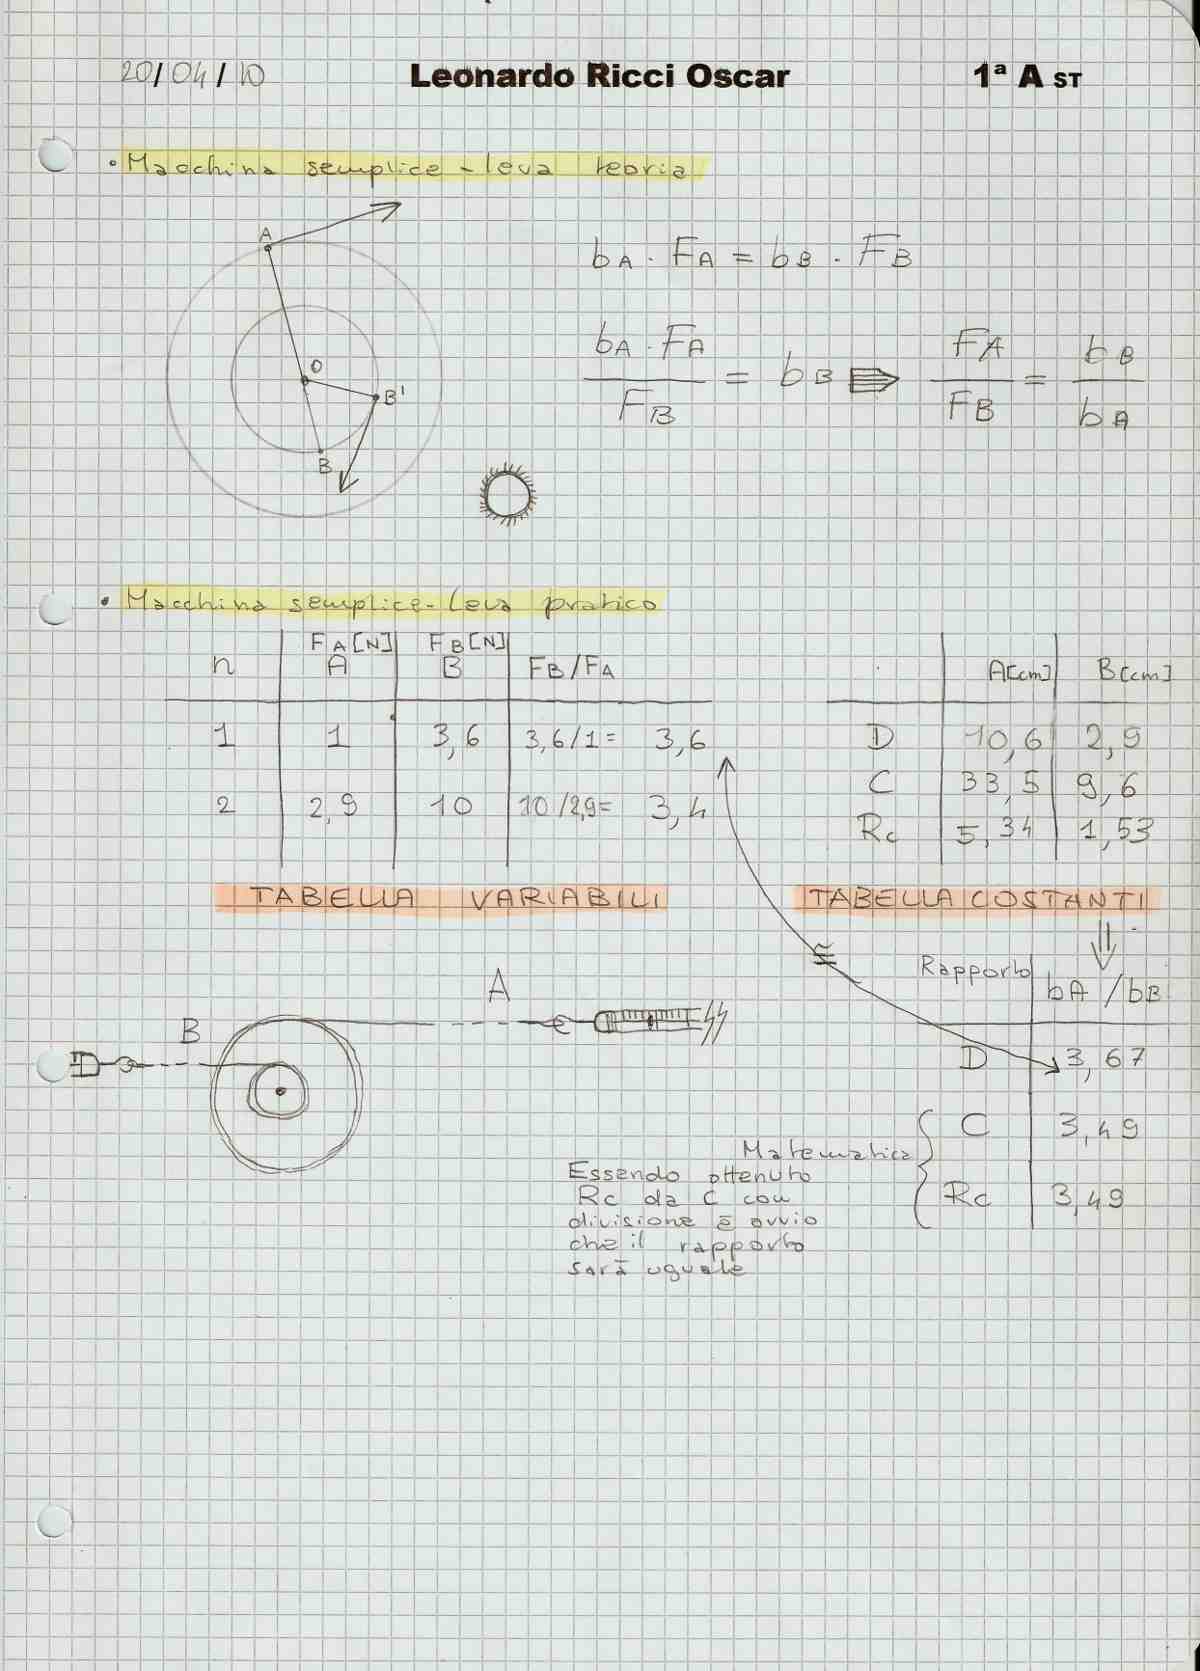 20/04/10 Leonardo Ricci Oscar 1ª A ST
• Macchina semplice - leva teoria
A
O
B'
B
bA · FA = bB · FB
bA · FA / FB = bB ⇒ FA / FB = bB / bA
• Macchina semplice - leva pratico
n FA[N] A FB[N] B FB/FA
1 1 3,6 3,6/1= 3,6
2 2,9 10 10/2,9= 3,4
TABELLA VARIABILI
A[cm] B[cm]
D 10,6 2,9
C 33,5 9,6
Rc 5,34 1,53
TABELLA COSTANTI
≅
⇓
Rapporto bA/bB
D 3,67
C 3,49
Rc 3,49
A
B
D
Matematica
Essendo ottenuto
Rc da C con
divisione è ovvio
che il rapporto
sarà uguale